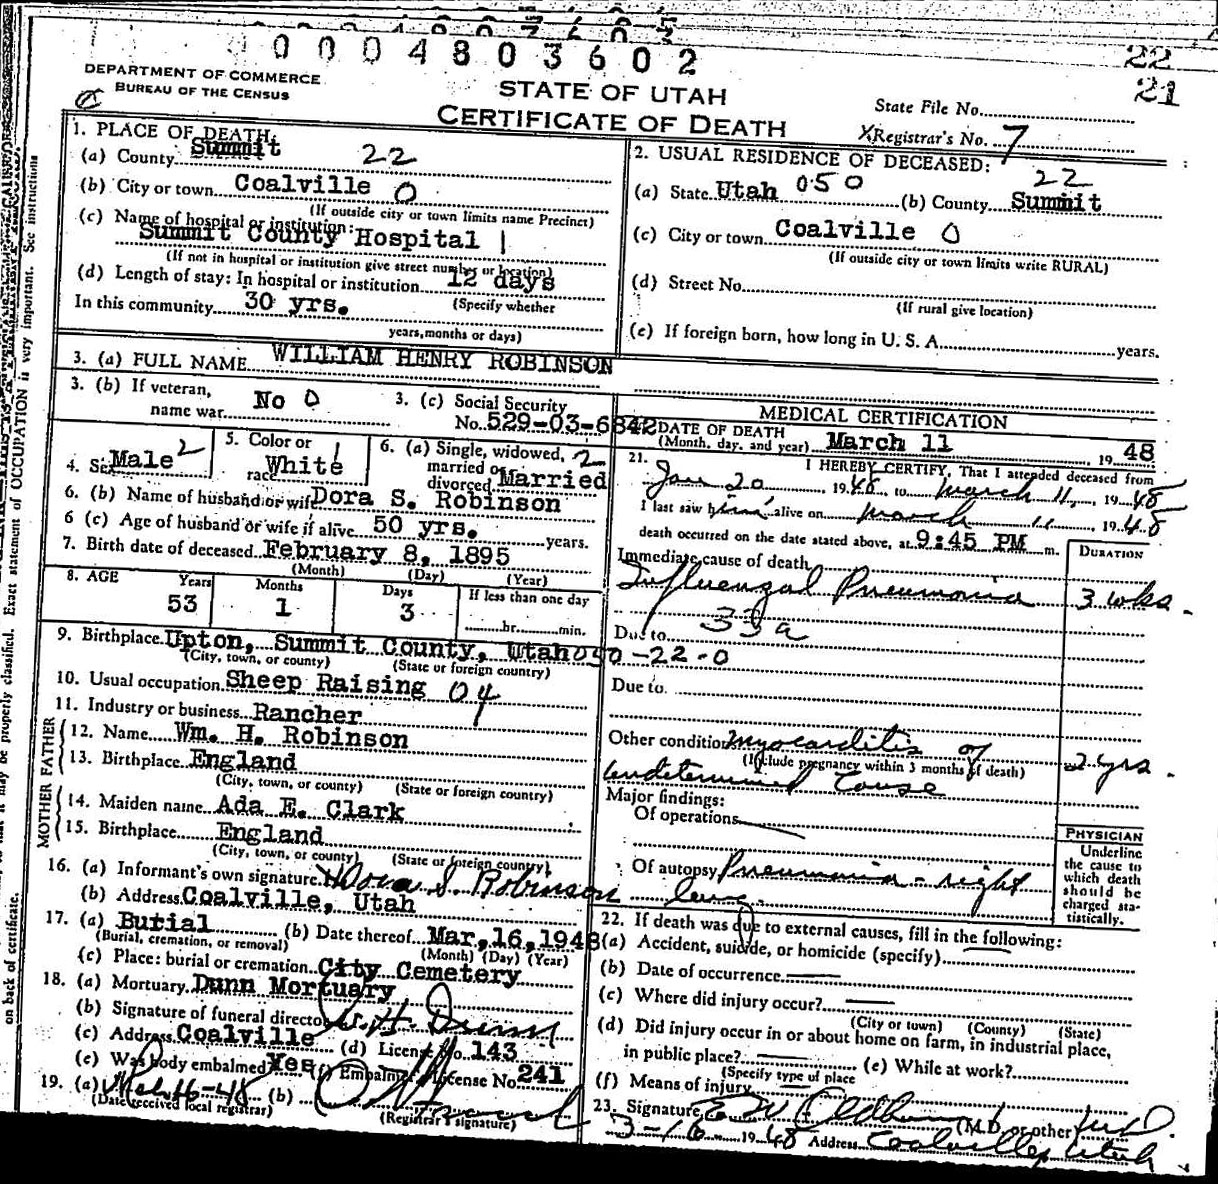 0 0 0 4 8 0 3 6 0 2
22
21
DEPARTMENT OF COMMERCE
BUREAU OF THE CENSUS
STATE OF UTAH
CERTIFICATE OF DEATH
State File No.
X Registrar's No. 7
1. PLACE OF DEATH:
(a) County Summit 22
(b) City or town Coalville 0
(If outside city or town limits name Precinct)
(c) Name of hospital or institution:
Summit County Hospital 1
(If not in hospital or institution give street number or location)
(d) Length of stay: In hospital or institution 12 days
In this community 30 yrs. (Specify whether
years, months or days)
2. USUAL RESIDENCE OF DECEASED:
22
(a) State Utah 050 (b) County Summit
(c) City or town Coalville 0
(If outside city or town limits write RURAL)
(d) Street No.
(If rural give location)
(e) If foreign born, how long in U. S. A. years.
3. (a) FULL NAME WILLIAM HENRY ROBINSON
3. (b) If veteran,
name war No 0
3. (c) Social Security
No. 529-03-6842
4. Sex Male 2
5. Color or
race White 1
6. (a) Single, widowed, 2
married or
divorced Married
6. (b) Name of husband or wife Dora S. Robinson
6 (c) Age of husband or wife if alive 50 yrs. years.
7. Birth date of deceased February 8, 1895
(Month) (Day) (Year)
8. AGE Years Months Days If less than one day
53 1 3 hr. min.
9. Birthplace Upton, Summit County, Utah 050-22-0
(City, town, or county) (State or foreign country)
10. Usual occupation Sheep Raising 04
11. Industry or business Rancher
FATHER
12. Name Wm. H. Robinson
13. Birthplace England
(City, town, or county) (State or foreign country)
MOTHER
14. Maiden name Ada E. Clark
15. Birthplace England
(City, town, or county) (State or foreign country)
16. (a) Informant's own signature Dora S. Robinson
(b) Address Coalville, Utah
17. (a) Burial (b) Date thereof Mar. 16, 1948
(Burial, cremation, or removal) (Month) (Day) (Year)
(c) Place: burial or cremation City Cemetery
18. (a) Mortuary Dunn Mortuary
(b) Signature of funeral director Dunn
(c) Address Coalville (d) License No. 143
(e) Was body embalmed Yes (f) Embalmer License No. 241
19. (a) (b)
(Date received local registrar) (Registrar's signature)
MEDICAL CERTIFICATION
DATE OF DEATH
(Month, day, and year) March 11 19 48
21. I HEREBY CERTIFY, That I attended deceased from
Jan 20 1948, to March 11, 1948
I last saw him alive on March 11 1948
death occurred on the date stated above, at 9:45 PM m.
DURATION
Immediate cause of death
Influenzal Pneumonia 3 wks.
Due to 33a
Due to
Other condition Myocarditis of 2 yrs.
(Include pregnancy within 3 months of death)
Undetermined Cause
Major findings:
Of operations
Of autopsy Pneumonia - right
lung.
PHYSICIAN
Underline
the cause to
which death
should be
charged sta-
tistically.
22. If death was due to external causes, fill in the following:
(a) Accident, suicide, or homicide (specify)
(b) Date of occurrence
(c) Where did injury occur?
(City or town) (County) (State)
(d) Did injury occur in or about home on farm, in industrial place,
in public place? (e) While at work?
(Specify type of place
(f) Means of injury
23. Signature (M.D. or other) M.D.
3-16- 1948 Address Coalville, Utah
Exact statement of OCCUPATION is very important. See instructions
it may be properly classified.
on back of certificate.